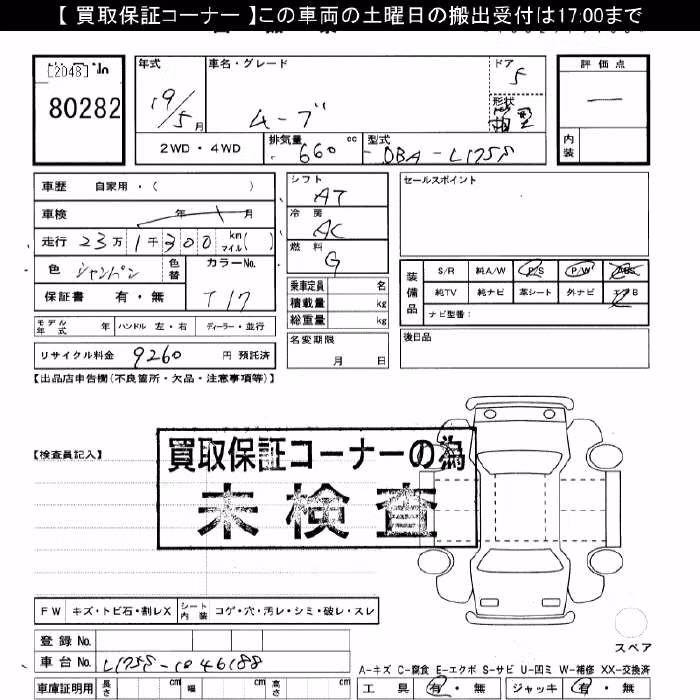 【 買取保証コーナー 】この車両の土曜日の搬出受付は17:00まで
[2048] No
80282
年式
19/5月
車名・グレード
ムーブ
ドア
5
形状
箱型
評価点
内装
2WD・4WD
排気量
660 cc
型式
DBA-L175S
車歴 自家用・( )
車検 年 月
走行 23万1千300 km マイル( )
色 シャンパン
色替
カラーNo.
T17
保証書 有・無
モデル年式 年 ハンドル 左・右 ディーラー・並行
リサイクル料金 9260 円 預託済
シフト
AT
冷房
AC
燃料
G
乗車定員 名
積載量 kg
総重量 kg
名変期限
月 日
セールスポイント
装備品
S/R 純A/W P/S P/W ABS
純TV 純ナビ 革シート 外ナビ エアB
ナビ型番:
後日品
【出品店申告欄(不良箇所・欠品・注意事項等)】
【検査員記入】
買取保証コーナーの為
未検査
FW キズ・トビ石・割レX シート内装 コゲ・穴・汚レ・シミ・破レ・スレ
スペア
登録No.
車台No. L175S-1046188
車庫証明用 長さ cm 幅 cm 高さ cm
A-キズ C-腐食 E-エクボ S-サビ U-凹ミ W-補修 XX-交換済
工具 有・無 ジャッキ 有・無